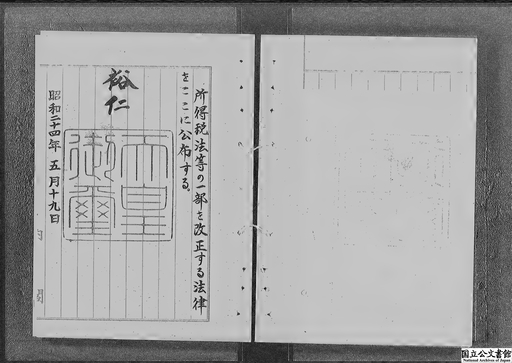 所得税法等の一部を改正する法律
をここに公布する。
裕仁
天皇御璽
昭和二十四年五月十九日
国立公文書館
National Archives of Japan